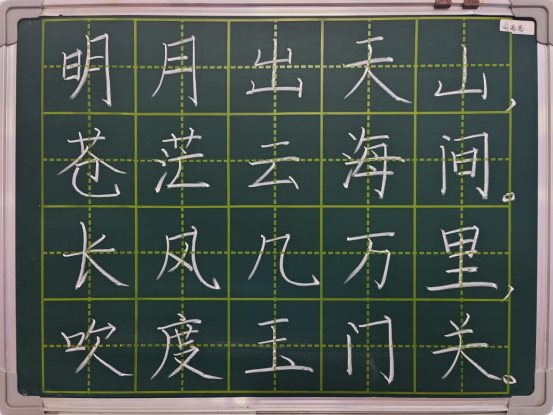 明月出天山，
苍茫云海间。
长风几万里，
吹度玉门关。